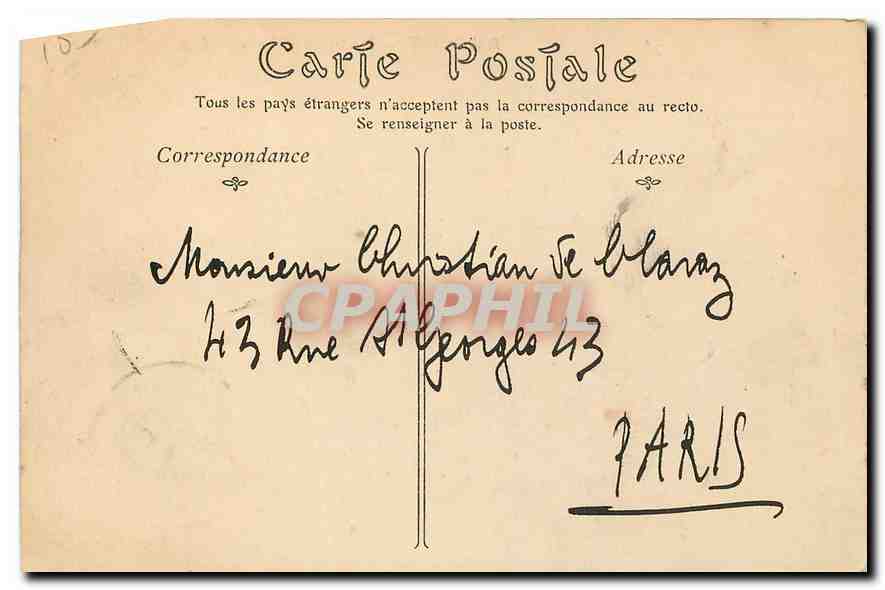 Carte Postale
Tous les pays étrangers n'acceptent pas la correspondance au recto.
Se renseigner à la poste.
Correspondance
Adresse
Monsieur Christian de Claraz
CPAPHIL
43 Rue St Georges 43
PARIS